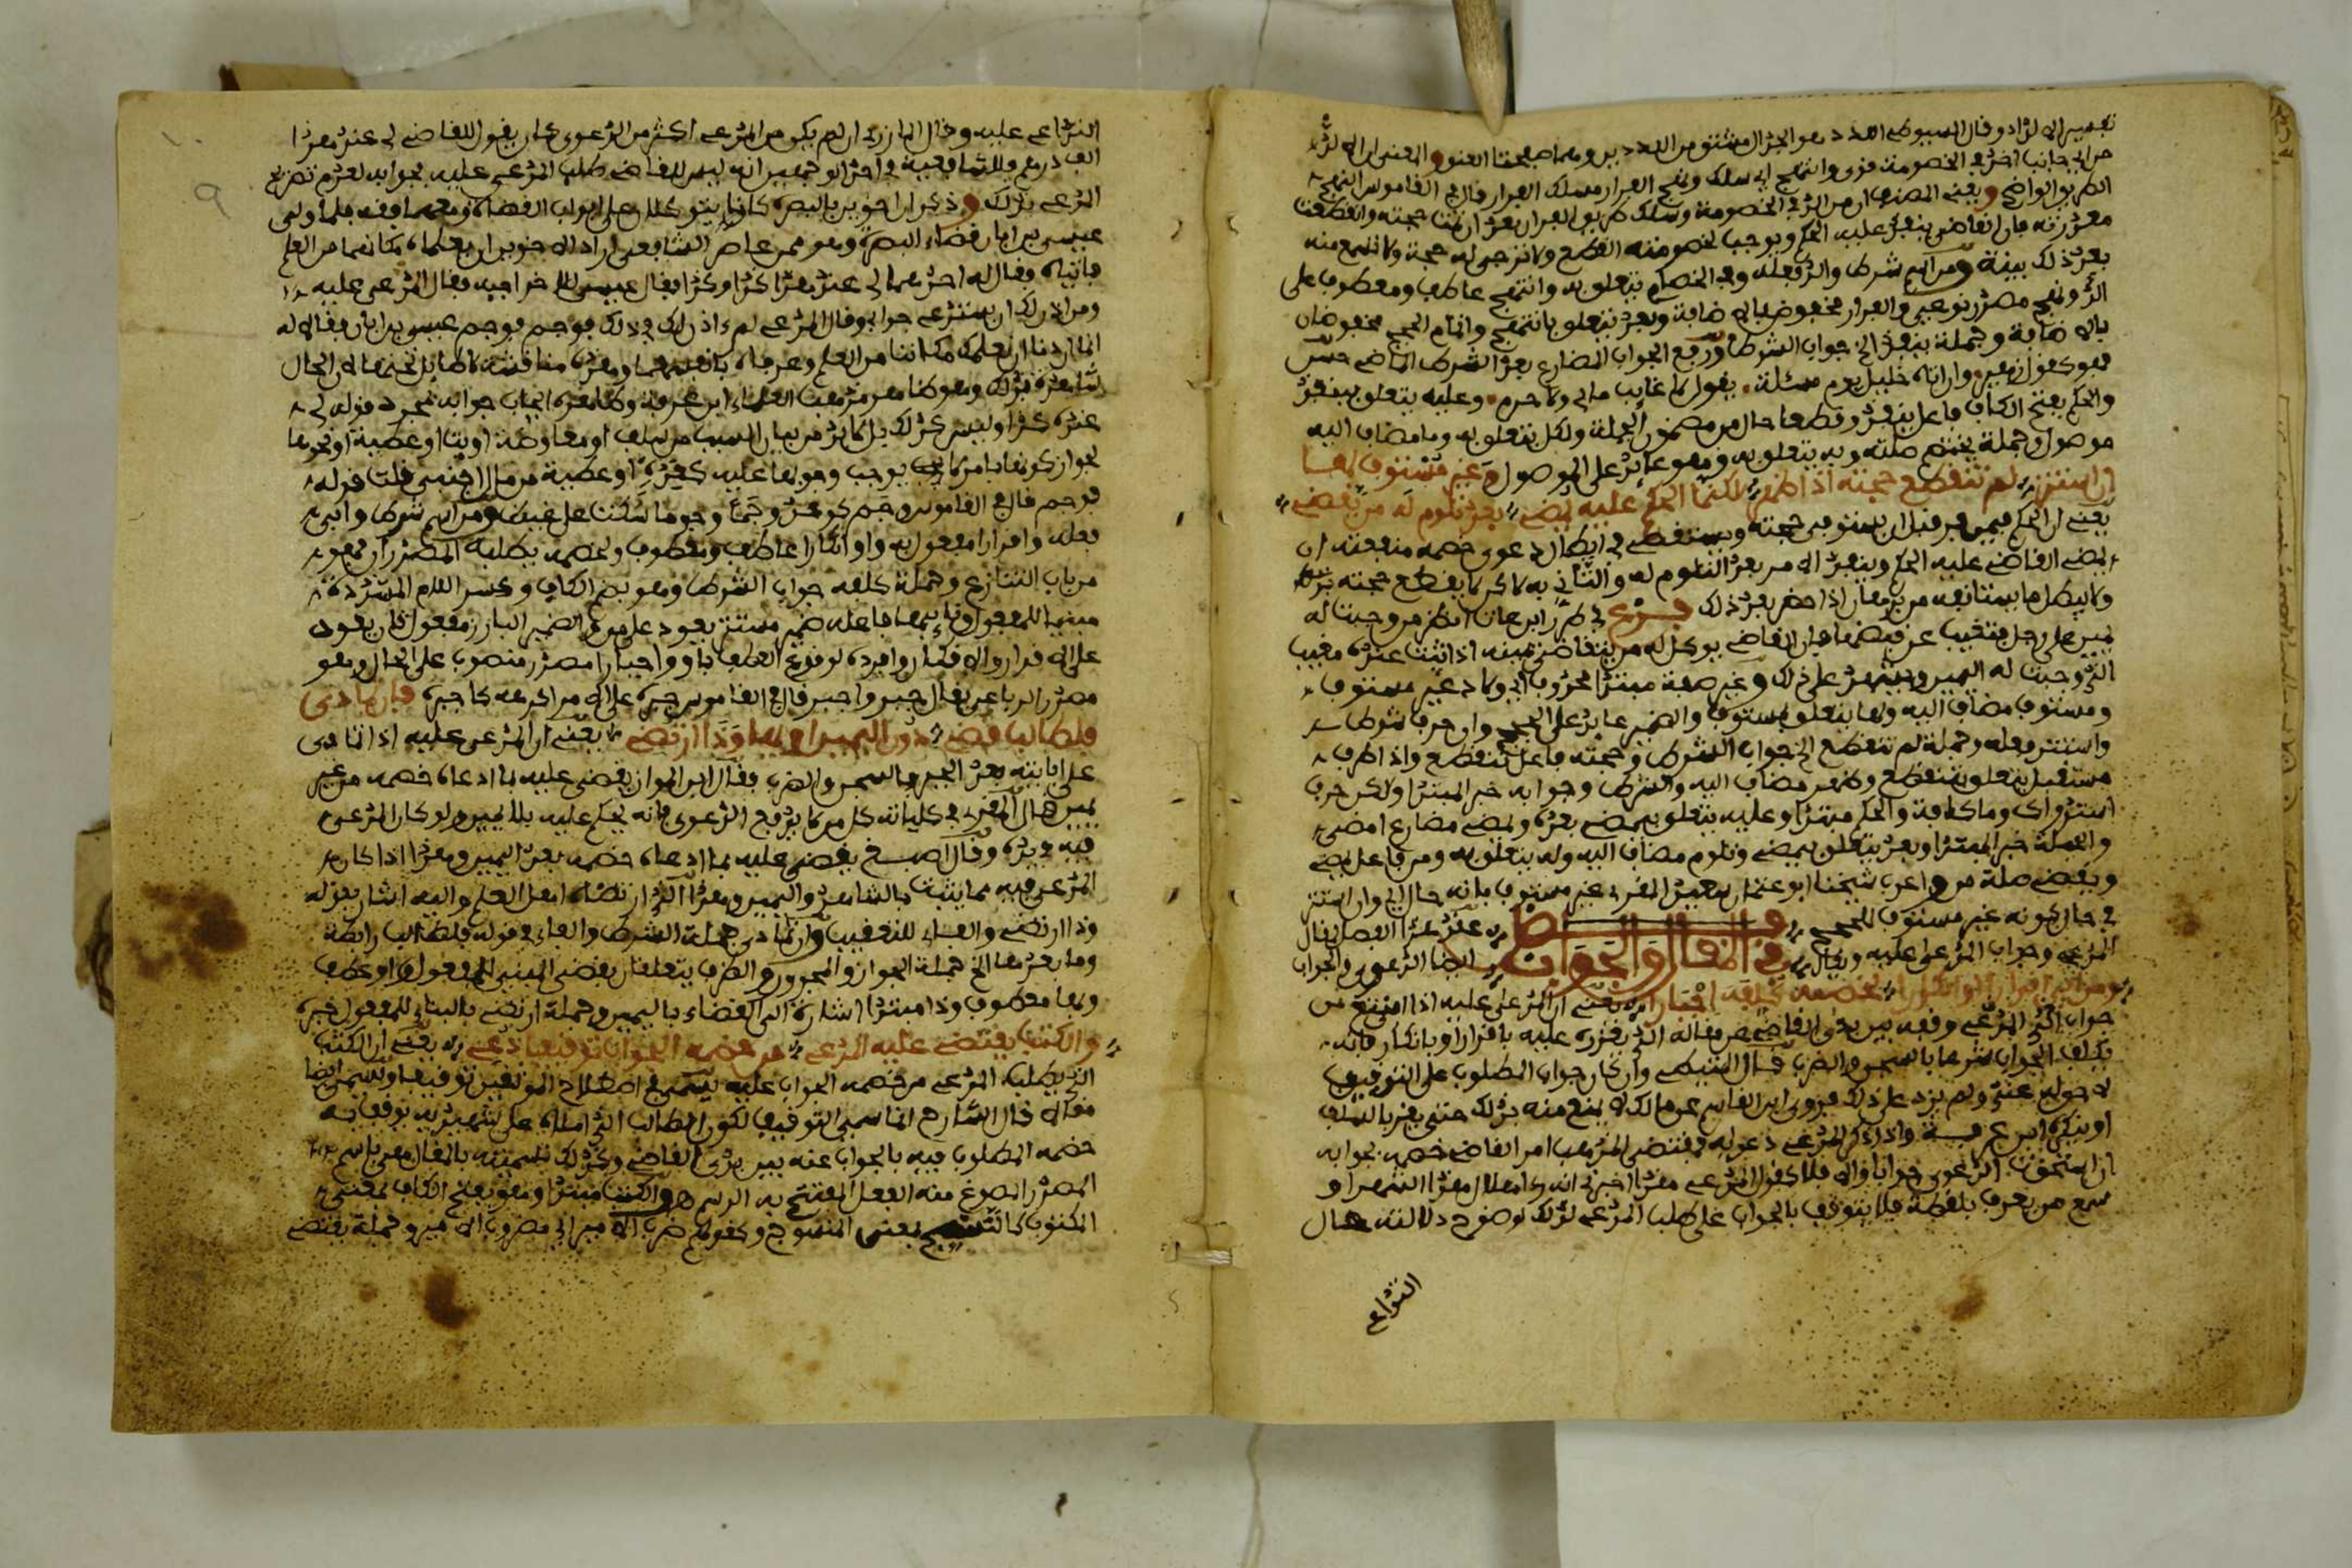 تفسير الالد وقال السيوطي الالد هو الجدال مشتق من اللديدين وهما صفحتا العنق والمعنى ان الالد
من اي جانب اخذ في الخصومة قوي وانتهج اي سلك ونهج الفرار مسلك الفرار قال في القاموس النهج
الطريق الواضح ويعني المصنف ان من الد في الخصومة وسلك طريق الفرار بعد ان تمت حجته وانقطعت
معذرته فان القاضي ينفذ عليه الحكم ويوجب لخصومته القطع ولا ترجى له حجة ولا تسمع منه
بعد ذلك بينة ومن اسم شرط والد فعله وفي الخصام يتعلق به وانتهج عاطف ومعطوف على
الد ونهج مصدر نوعي والفرار مخفوض بالاضافة وبعد يتعلق بانتهج واتمام الحجج مخفوضان
بالاضافة وجملة ينفذ الخ جواب الشرط ورفع الجواب المضارع بعد الشرط الماضي حسن
فهو كقول زهير وان اتاه خليل يوم مسئلة يقول لا غايب مالي ولا حرم وعليه يتعلق بينفذ
والحكم بفتح الكاف فاعل ينفذ وقطعا حال من مضمون الجملة ولكل يتعلق به وما مضاف اليه
موصول وجملة يختصم صلته وبه يتعلق به وهو عايد على الموصول وغير مستوف لها
ان استتر لم تنقطع حجته اذا ظهر لكنما الحكم عليه يمضي بعد تلوم له من يقضي
يعني ان الحكم فيمن فر قبل ان يستوفي حجته ويستقصي في ابطال دعوى خصمه منفعته ان
يمضي القاضي عليه الحكم وينفذ الامر بعد التلوم له والثاني به لاكن لا يقطع حجته بذلك
ولا يبطل ما يستانفه من اذا حضر بعد ذلك فرع في طرر ابن عات انظر من وجبت له
يمين على رجل فتغيب عن قبضها فان القاضي يوكل له من يتقاضى يمينه اذا ثبت عنده مغيب
الذي وجبت له اليمين ويشهد على ذلك وغير صفة مبتدا محذوف اي ولاد غير مستوف
ومستوف مضاف اليه ولها يتعلق بمستوف والضمير عايد على الحجج وان حرف شرط
واستتر فعله وجملة لم تنقطع الخ جواب الشرط وحجته فاعل تنقطع واذا ظرف
مستقبل يتعلق بتنقطع وظهر مضاف اليه والشرط وجوابه خبر المبتدا ولكن حرف
استدراك وما كافة والحكم مبتدا وعليه يتعلق بيمضي بعده ويمضي مضارع امضى
والجملة خبر المبتدا وبعد يتعلق بيمضي وتلوم مضاف اليه وله يتعلق به ومن فاعل يمضي
ويقضي صلة من واعرب شيخنا ابو عثمان سعيد المقري غير مستوف بانه حال اي وان استتر
في حال كونه غير مستوف للحجج فصل عقد هذا الفصل لمقال
المدعي وجواب المدعى عليه ويقال في المقال والجواب ايضا الدعوى والجواب
ومن ابى اقرارا او انكارا لخصمه كلفه اجبارا يعني ان المدعى عليه اذا امتنع من
جواب المدعي وقفه بين يدي القاضي عن مقاله الذي يقرره عليه باقرار او بانكار فانه
يكلف الجواب شرعا بالسجن والضرب قال المتيطي وان كان جواب المطلوب على التوقيف
لا حق له عندي ولم يزد على ذلك فروى ابن القاسم عن مالك لا يمنع منه بذلك حتى يقر بالسلف
او ينكر ابن عرفة واذا ذكر المدعي دعواه فمقتضى المذهب امر القاضي خصمه بجوابه
ان استحقت الدعوى جوابا والا فلا كقول المدعي هذا اخبرني انه راى هلال هذا الشهر او
سمع من يعرف بلقطة فلا يتوقف بالجواب على طلب المدعي لذلك لوضوح دلالة حال
التداعي
التداعي عليه وقال المازري ان لم يكن من المدعي اكثر من الدعوى كان يقول للقاضي لي عند هذا
الف درهم وللشافعية في احد الوجهين انه ليس للقاضي طلب المدعى عليه بجوابه لعدم تصريح
المدعي بذلك وذكر ان اخوين بالبصرة كانا يتوكلان على ابواب القضاة ومعهما فقه فلما ولي
عيسى بن ابان قضاء البصرة وهو ممن عاصر الشافعي اراد الاخوين ان يعلماه مكانهما من العلم
فاتياه فقال له احدهما لي عند هذا كذا وكذا فقال عيسى للاخر اجبه فقال المدعى عليه
ومن اذن لك ان تستدعي جوابي وقال المدعي لم ءاذن لك في ذلك فوجم فوجم عيسى بن ابان فقالا له
انما اردنا ان نعلمك مكاننا من العلم وعرفاه بانفسهما وهذه مناقشة لا طايل تحتها لان الحال
شاهدة بذلك وهو ظاهر مذهب الفقهاء ابن عرفة وظاهره ايجاب جوابه بمجرد قوله لي
عنده كذا وليس كذلك بل لا بد من بيان السبب من سلف او معاوضة او بتا او عطية او نحوها
لجواز كونها بامر لا يوجب وجوبها عليه كعدة او عطية من مال اجنبي قلت قوله
فوجم قال في القاموس وجم كوعد وجما ووجوما سكت على غيظ ومن اسم شرط وابى
فعله واقرارا مفعول به واو انكارا عاطف ومعطوف ولخصمه يطلبه المصدران فهو
من باب التنازع وجملة كلفه جواب الشرط وهو بضم الكاف وكسر اللام المشددة
مبنيا للمفعول ونائبها فاعله ضمير مستتر يعود على من والضمير البارز مفعول ثان يعود
على الاقرار والانكار وافرده لوقوع العطف باو واجبارا مصدر منصوب على الحال وهو
مصدر الرباعي يقال جبر واجبر قال في القاموس جبره على الامر اكرهه كاجبره فان تمادى
فلطالب قضي دون اليمين او بها وذا ارتضي يعني ان المدعى عليه اذا تمادى
على ابايته بعد الجبر بالسجن والضرب فقال ابن المواز يقضى عليه بما ادعاه خصمه من غير
يمين قال المقري في كلياته كل من لا يدفع الدعوى فانه يحكم عليه بلا يمين ولو كان المدعى
فيه بيده وقال اصبغ يقضى عليه بما ادعاه خصمه بعد اليمين وهذا اذا كان
المدعى فيه مما يثبت بالشاهد واليمين وهذا الذي ارتضاه اهل العلم واليه اشار بقوله
وذا ارتضي والفاء للتعقيب وان تمادى جملة الشرط والفاء في قوله فلطالب رابطة
وما بعدها الخ جملة الجواب والمجرور والظرف يتعلقان بقضي المبني للمفعول واو عطف
وبها معطوف وذا مبتدا اشارة الى القضاء باليمين وجملة ارتضي بالبناء للمفعول خبره
والكتب يقتضي عليه المدعي من خصمه الجواب توقيفا دعي يعني ان الكتب
الذي يطلب المدعي من خصمه الجواب عليه يسمى في اصطلاح الموثقين توقيفا ويسمى ايضا
مقالا قال الشارح انما سمي التوقيف لكون الطالب الذي املاه على شهيديه يوقف به
خصمه المطلوب فيه بالجواب عنه بين يدي القاضي وكذلك تسميته بالمقال هي باسم
المصدر المصوغ منه الفعل المفتتح به الرسم هـ والكتب مبتدا وهو بفتح الكاف بمعنى
المكتوب كالنسج بمعنى المنسوج وكقولهم ضرب الامير اي مضروب الامير وجملة يقتضي